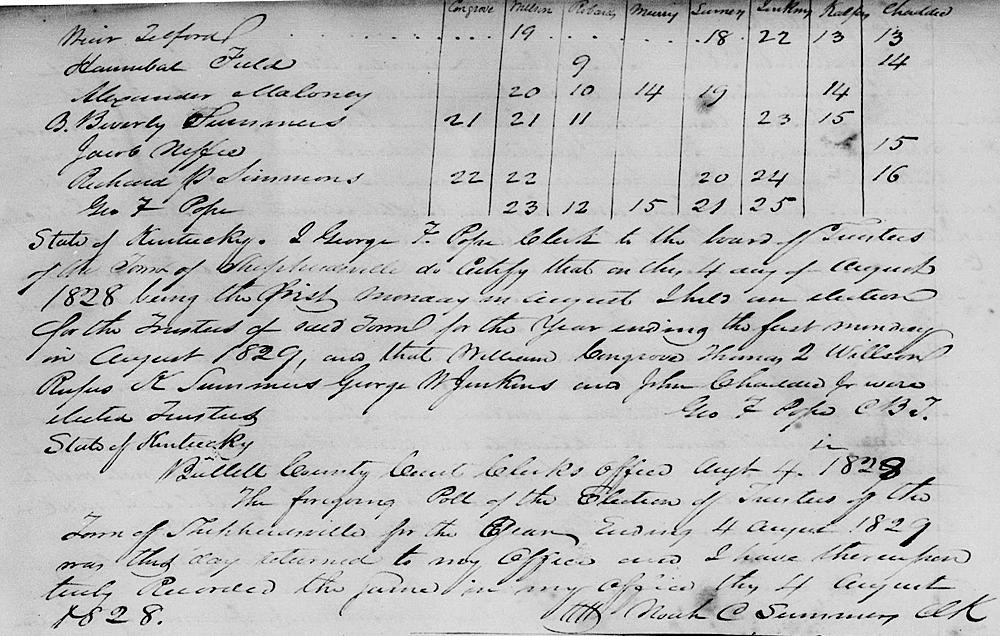 Congrove Willson Roberts Murry Sumers Jenkins Kalfus Chaddic
Weir Telford 19 18 22 13 13
Hannibal Field 9 14
Alexander Maloney 20 10 14 19 14
B. Beverly Summers 21 21 11 23 15
Jacob 15
Richard P Simmons 22 22 20 24 16
Geo F Pope 23 12 15 21 25
State of Kentucky. I George F. Pope Clerk to the board of Trustees
of the Town of Shepherdsville do Certify that on this 4 day of August
1828 being the first monday in August I held an election
for the Trustees of said Town for the Year ending the first monday
in August 1829, and that William Congrove Thomas Q Willson
Rufus K Summers George W Jenkins and John Chaddic Jr were
elected Trustees
Geo F Pope C B T.
State of Kentucky
Bullett County Court Clerks office Augt 4. 1828
The foregoing Poll of the Election of Trustees of the
Town of Shepherdsville for the Year Ending 4 August 1829
was this day returned to my Office and I have thereupon
truly Recorded the same in my office this 4 August
1828.
Att Noah C Summers Clk